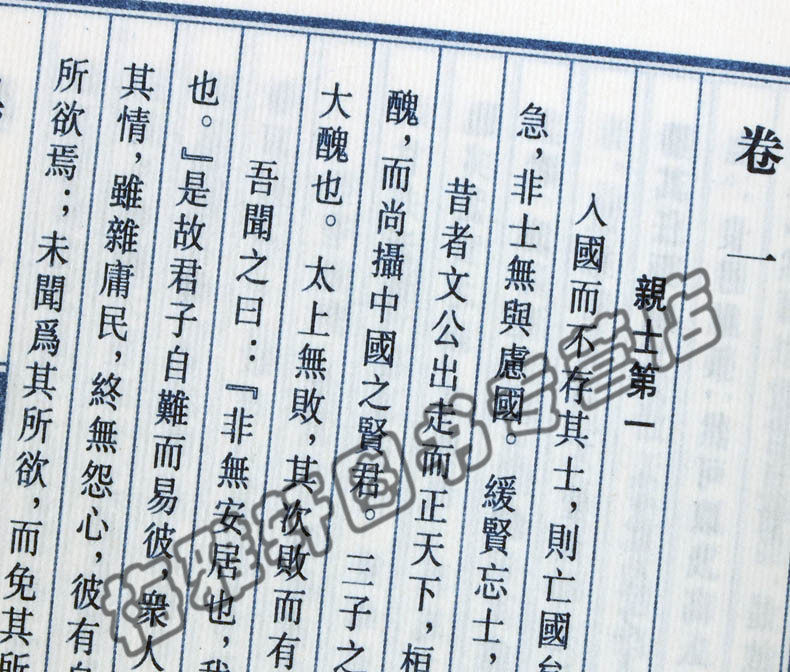 卷一
親士第一
入國而不存其士，則亡國矣
急，非士無與慮國。緩賢忘士，
昔者文公出走而正天下，桓
醜，而尚攝中國之賢君。三子之
大醜也。太上無敗，其次敗而有
吾聞之曰：『非無安居也，我
也。』是故君子自難而易彼，衆人
其情，雖雜庸民，終無怨心，彼有自
所欲焉；未聞爲其所欲，而免其所
楦雕轩图书专营店